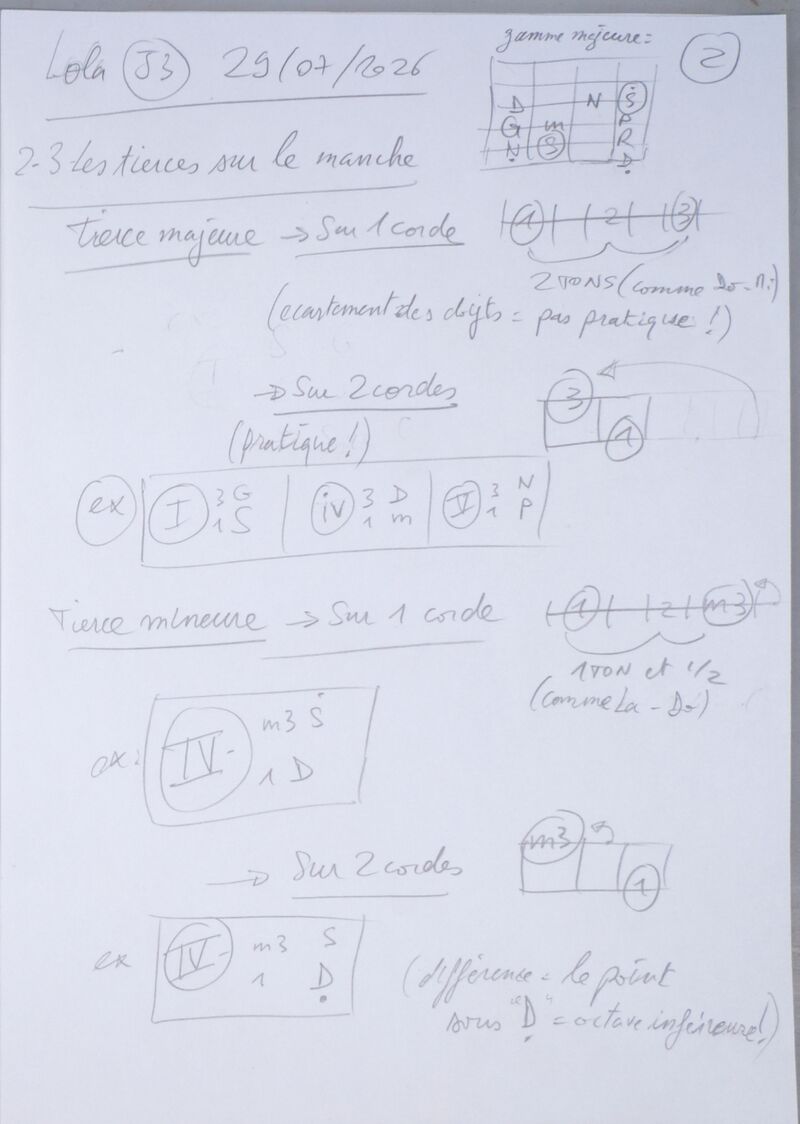 Lola J3 29/07/2026
gamme majeure =
2
D N Ṡ
G m P
Ṇ S R
Ḍ
2-3 Les tierces sur le manche
Tierce majeure → Sur 1 corde
1 2 3
2 TONS (comme Do-Mi)
(ecartement des doigts = pas pratique !)
→ Sur 2 cordes
3
1
(pratique !)
ex I 3 G iv 3 D V 3 N
1 S 1 m 1 P
Tierce mineure → Sur 1 corde
1 2 m3
1 TON et 1/2
(comme La - Do)
ex: IV- m3 Ṡ
1 D
→ Sur 2 cordes
m3
1
ex IV- m3 S
1 Ḍ
(différence = le point
sous "Ḍ" = octave inférieure !)